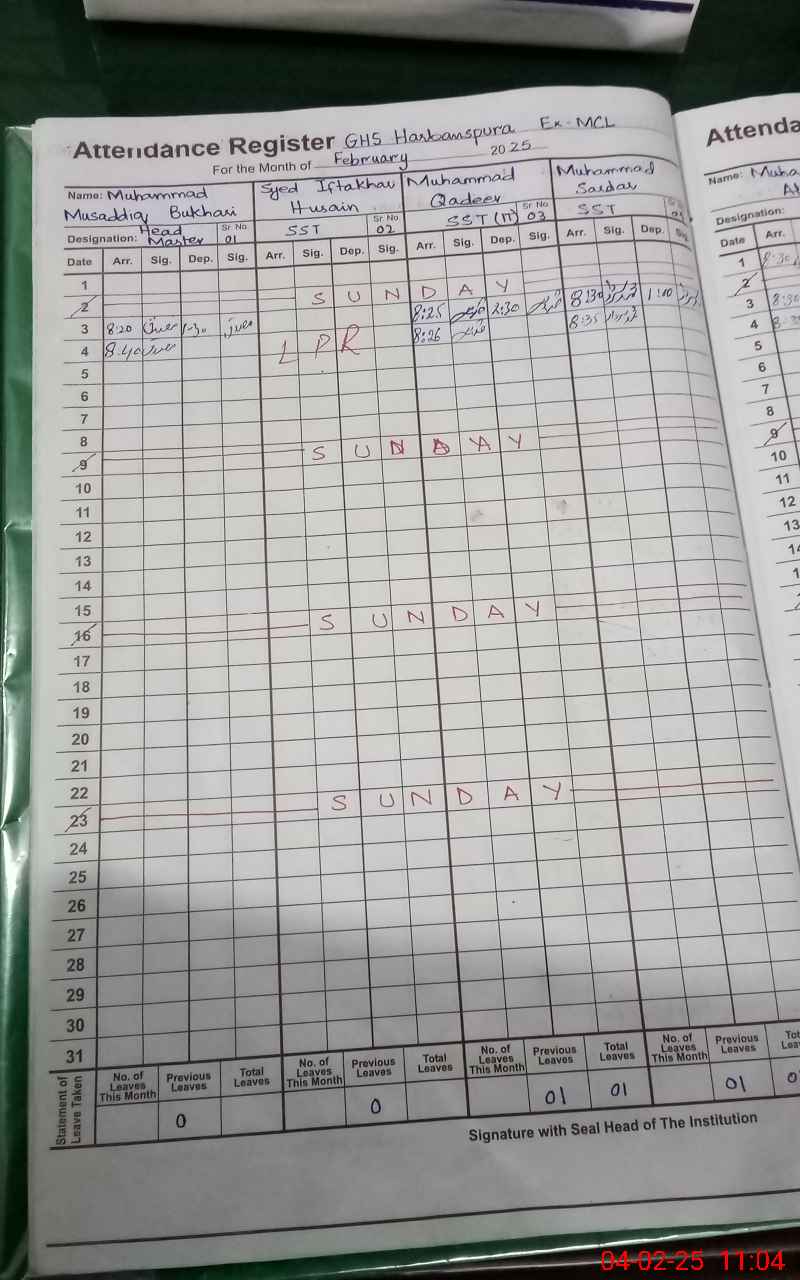 Attendance Register GHS Harbanspura Ex-MCL
For the Month of February 2025
Name: Muhammad Musaddiq Bukhari
Designation: Head Master Sr No 01
Syed Iftakhar Husain
SST Sr No 02
Muhammad Qadeer
SST (IT) Sr No 03
Muhammad Sardar
SST
Date Arr. Sig. Dep. Sig. Arr. Sig. Dep. Sig. Arr. Sig. Dep. Sig. Arr. Sig. Dep. Sig.
1
2 SUNDAY
3 8:20 1-30 8:25 2:30 8:30 1:00
4 8:40 LPR 8:26 8:35
5
6
7
8
9 SUNDAY
10
11
12
13
14
15
16 SUNDAY
17
18
19
20
21
22
23 SUNDAY
24
25
26
27
28
29
30
31
Statement of Leave Taken
No. of Leaves This Month Previous Leaves Total Leaves No. of Leaves This Month Previous Leaves Total Leaves No. of Leaves This Month Previous Leaves Total Leaves No. of Leaves This Month Previous Leaves
0 0 01 01 01
Signature with Seal Head of The Institution
Attenda
Name: Muha
Designation:
Date Arr.
1 8:30
2
3 8:30
4
5
6
7
8
9
10
11
12
13
04-02-25 11:04